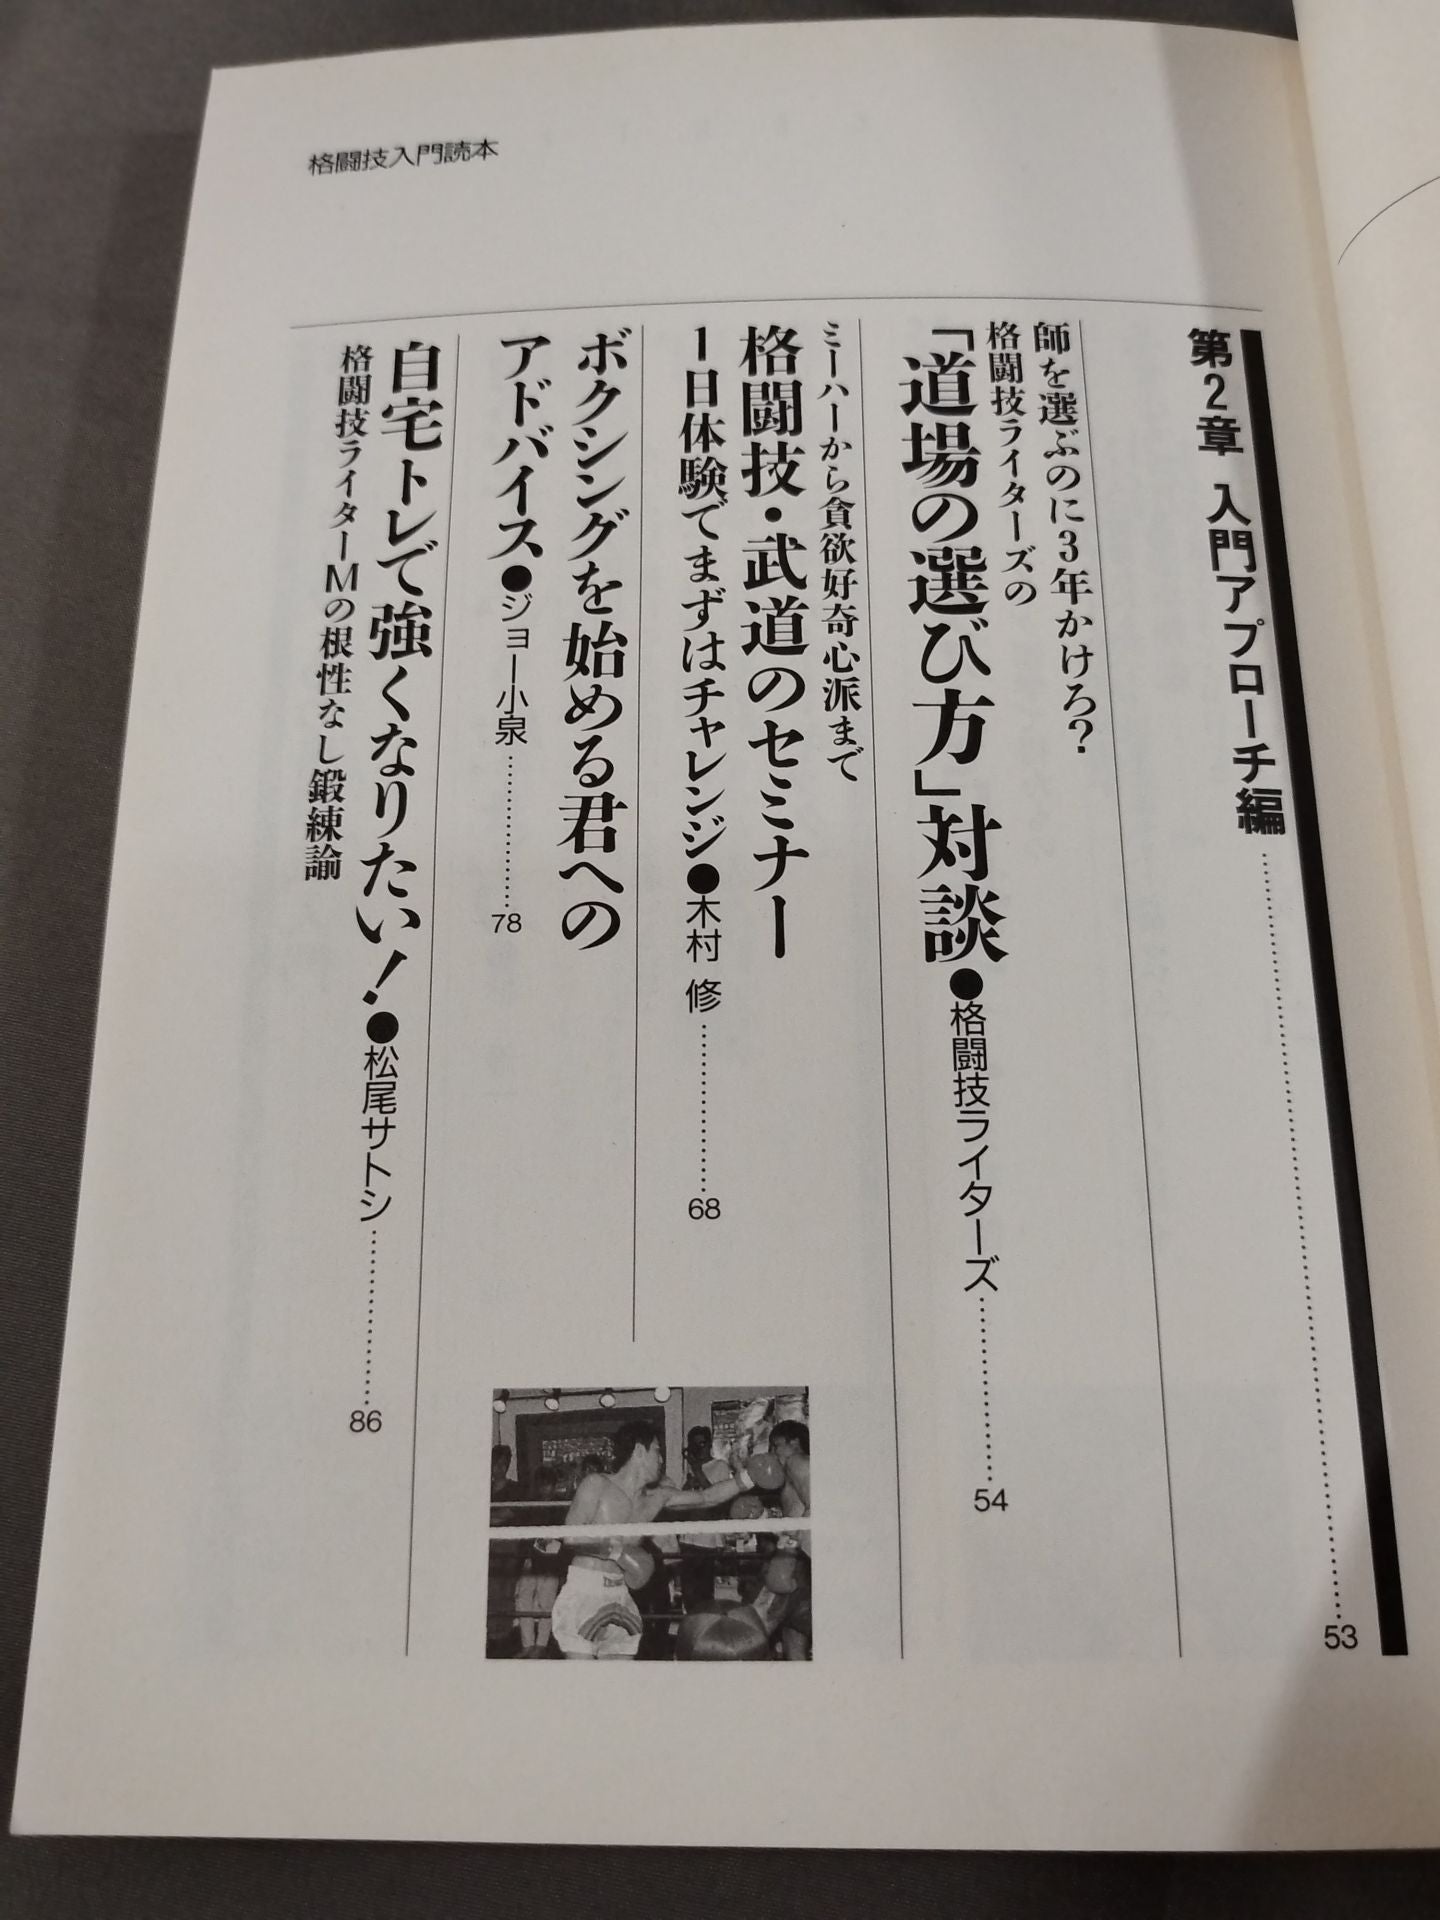 格闘技入門読本
第2章 入門アプローチ編……53
師を選ぶのに3年かけろ?
格闘技ライターズの
「道場の選び方」対談●格闘技ライターズ……54
ミーハーから貪欲好奇心派まで
格闘技・武道のセミナー
1日体験でまずはチャレンジ●木村 修……68
ボクシングを始める君への
アドバイス●ジョー小泉……78
自宅トレで強くなりたい!●松尾サトシ……86
格闘技ライターMの根性なし鍛練論